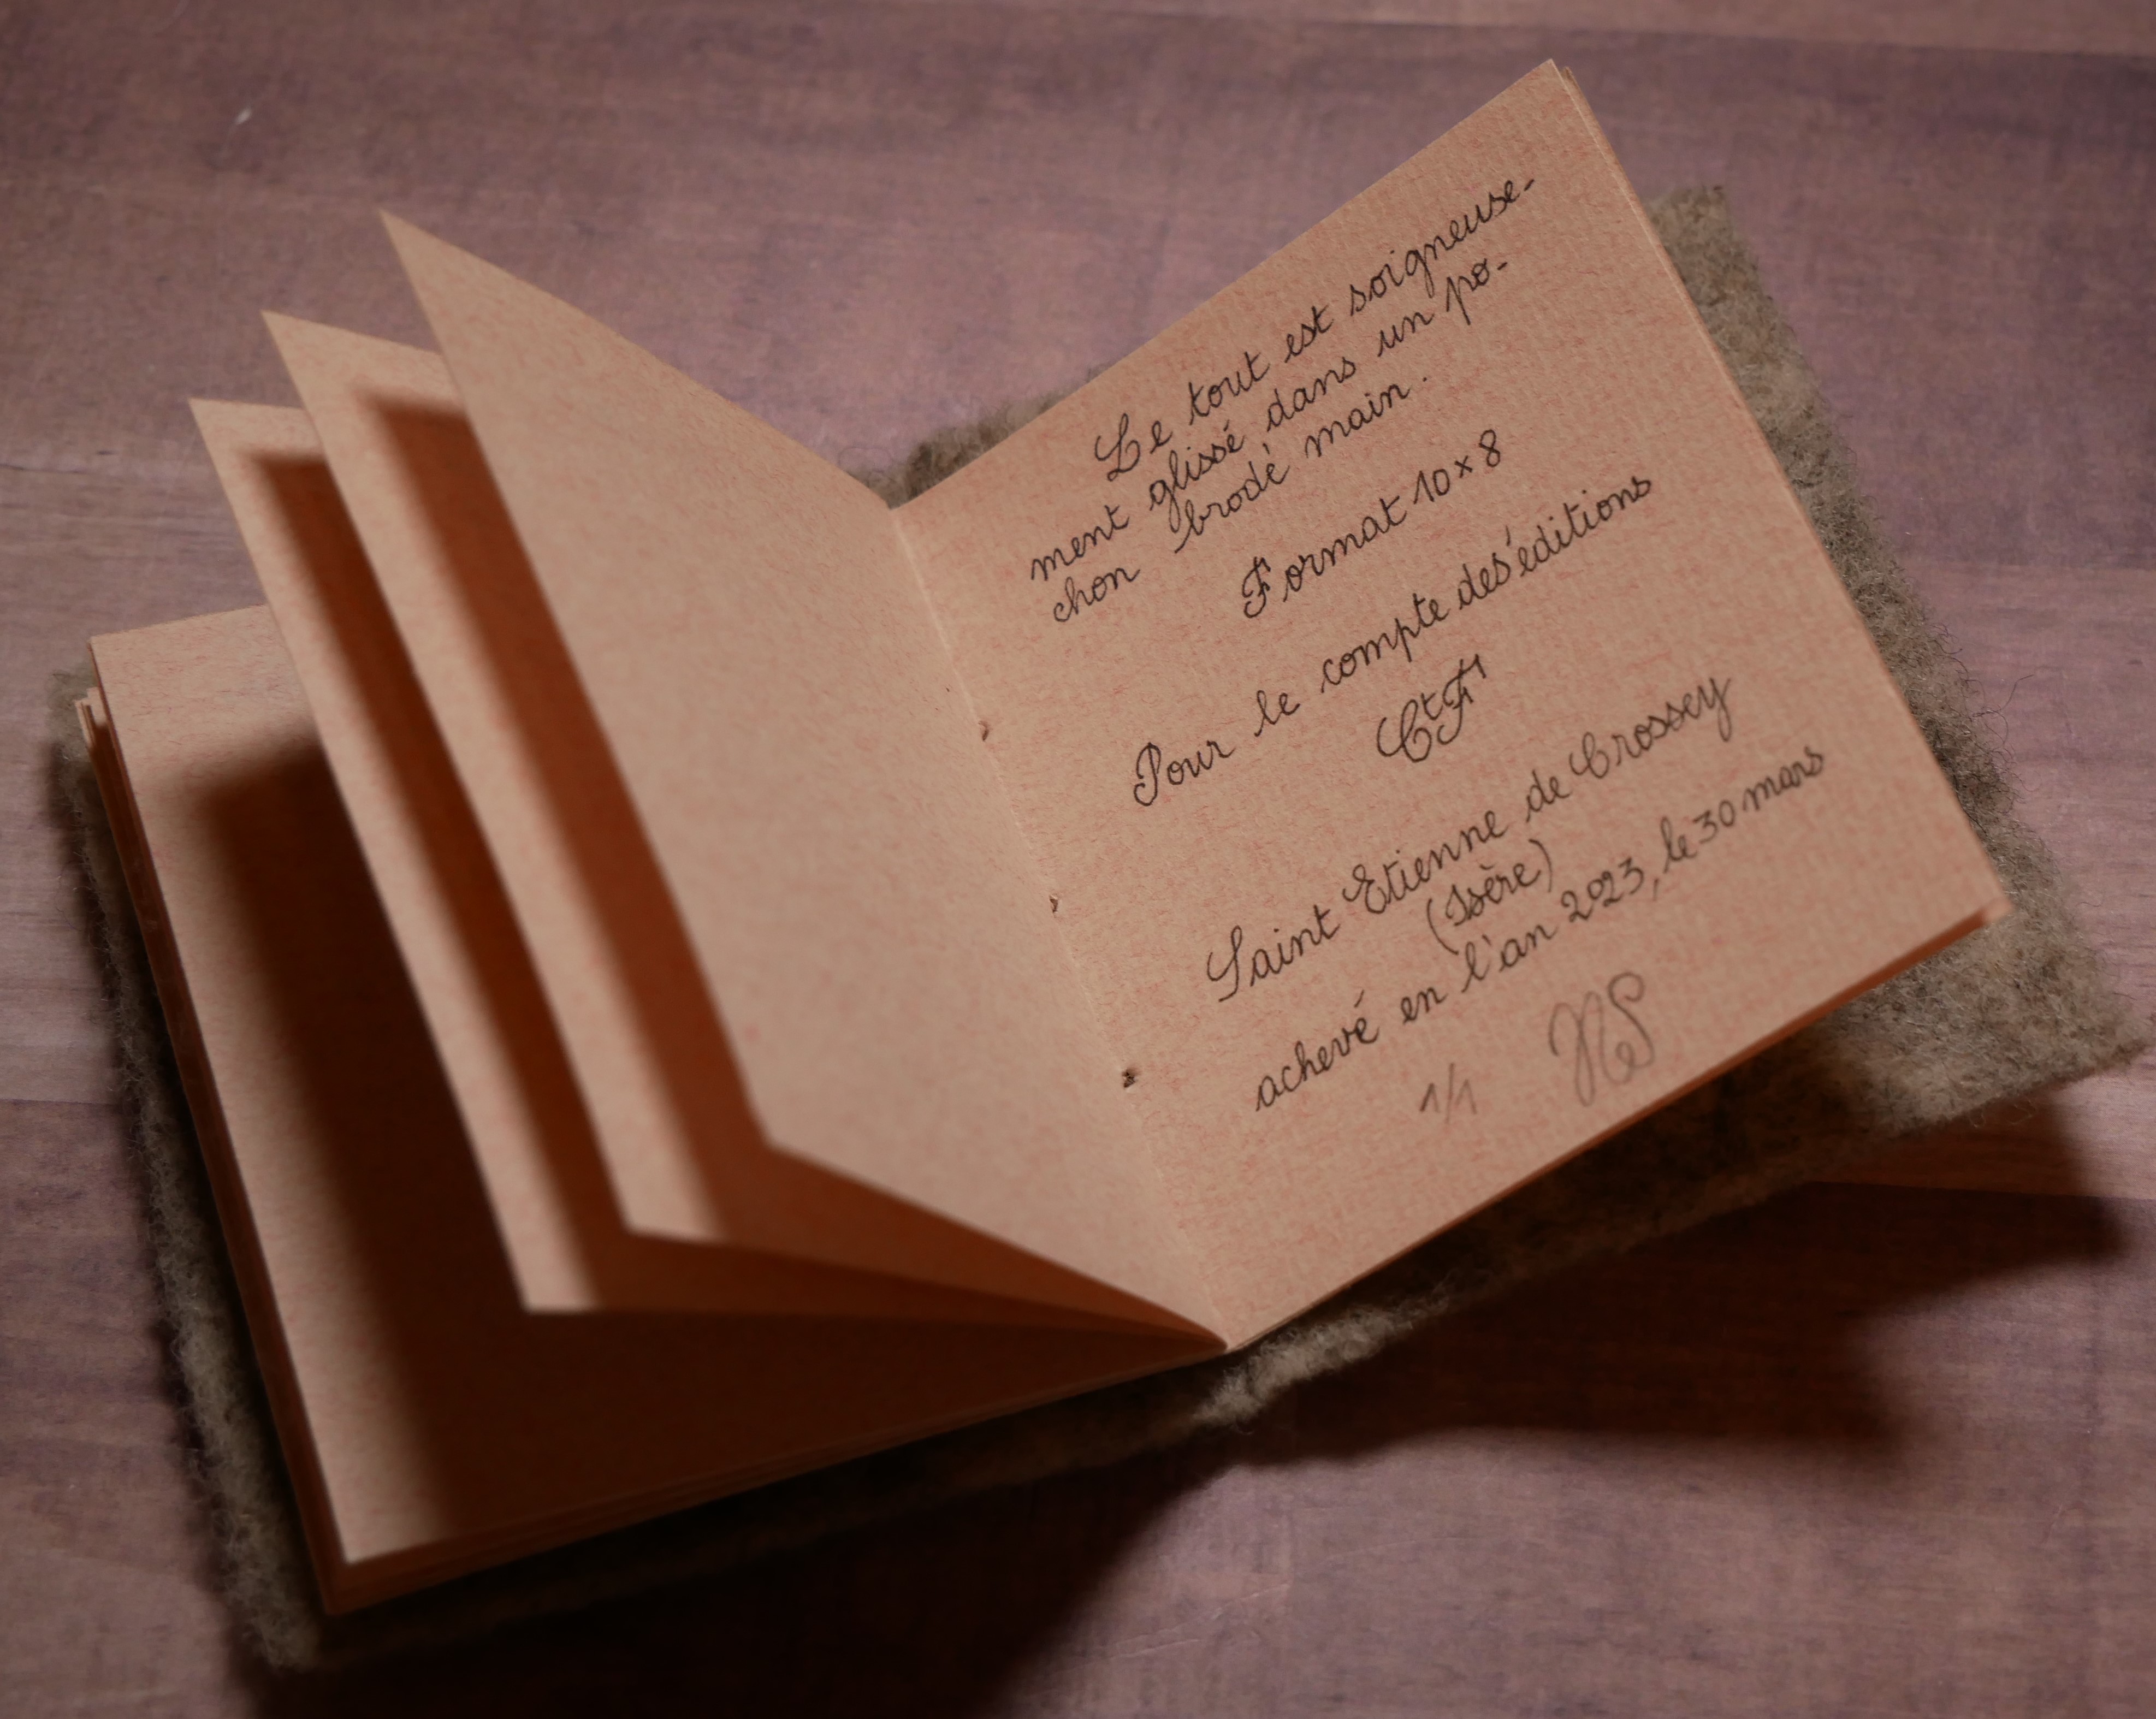 Le tout est soigneuse-
ment glissé dans un po-
chon brodé main.
Format 10 x 8
Pour le compte des éditions
CtF
Saint Etienne de Crossey
(Isère)
achevé en l'an 2023, le 30 mars
1/1